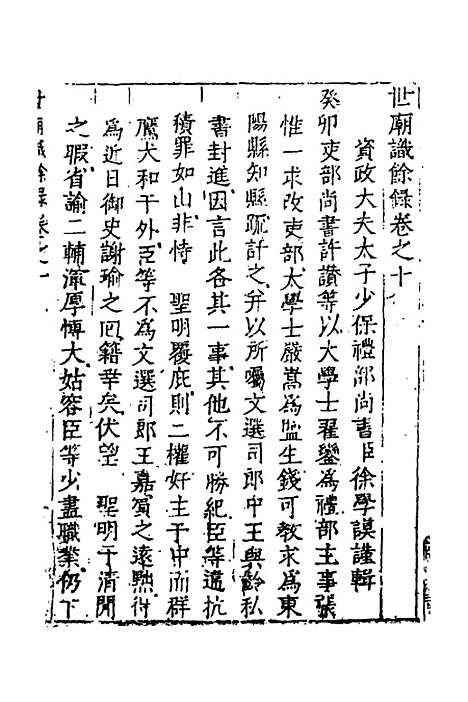 世廟識餘錄卷之十
資政大夫太子少保禮部尚書臣徐學謨謹輯
癸卯吏部尚書許讃等以大學士翟鑾為禮部主事張
惟一求改吏部大學士嚴嵩為監生錢可教求為東
陽縣知縣疏訐之并以所囑文選司郎中王與齡私
書封進因言此各其一事其他不可勝紀臣等違抗
積罪如山非恃 聖明覆庇則二權奸主于中而群
鷹犬和于外臣等不為文選司郎王嘉賔之遠黜得
為近日御史謝瑜之罷籍幸矣伏望 聖明于清閒
之暇省諭二輔漸厚博大姑容臣等少盡職業仍下
世廟識餘錄卷之十